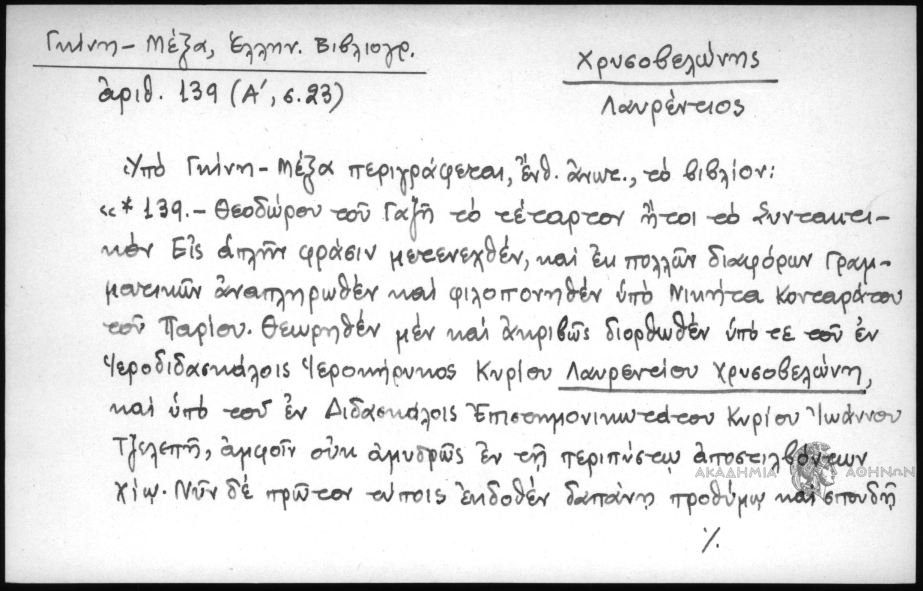 Γκίνη - Μέξα, Ἑλλην. Βιβλιογρ.
ἀριθ. 139 (Α', σ. 23)
Χρυσοβελώνης
Λαυρέντιος
Ὑπὸ Γκίνη - Μέξα περιγράφεται, ἔνθ. ἀνωτ., τὸ βιβλίον:
«* 139. - Θεοδώρου τοῦ Γαζῆ τὸ τέταρτον ἤτοι τὸ Συντακτι-
κὸν Εἰς ἁπλῆν φράσιν μετενεχθέν, καὶ ἐκ πολλῶν διαφόρων Γραμ-
ματικῶν ἀναπληρωθὲν καὶ φιλοπονηθὲν ὑπὸ Νικήτα Κονταράτου
τοῦ Παρίου. Θεωρηθὲν μὲν καὶ ἀκριβῶς διορθωθὲν ὑπό τε τοῦ ἐν
Ἱεροδιδασκάλοις Ἱεροκήρυκος Κυρίου Λαυρεντίου Χρυσοβελώνη,
καὶ ὑπὸ τοῦ ἐν Διδασκάλοις Ἐπιστημονικωτάτου Κυρίου Ἰωάννου
Τζελεπῆ, ἀμφοῖν οὐκ ἀμυδρῶς ἐν τῇ περιπύστῳ ἀποστιλβόντων
Χίῳ. Νῦν δὲ πρῶτον τύποις ἐκδοθὲν δαπάνῃ προθύμῳ καὶ σπουδῇ
ΑΚΑΔΗΜΙΑ ΑΘΗΝΩΝ
·/.